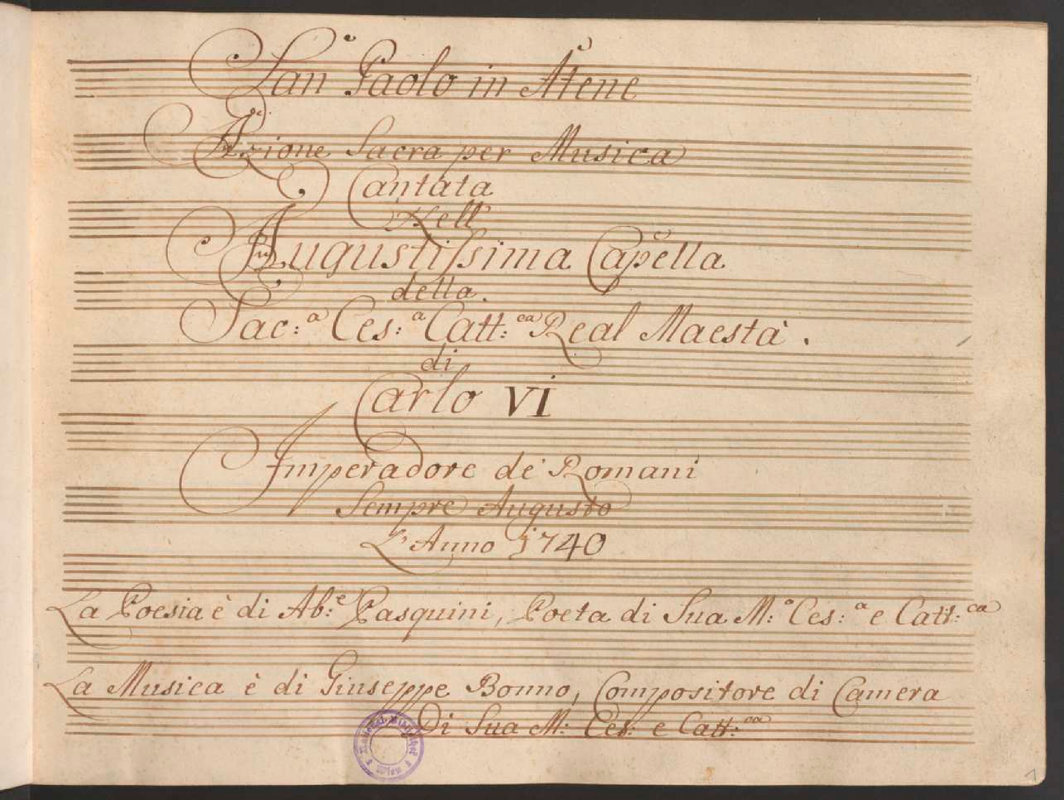 San Paolo in Atene
Azione Sacra per Musica
Cantata
Nell'
Augustissima Capella
della
Sac:ª Ces:ª Catt:ca Real Maestà.
di
Carlo VI
Imperadore de' Romani
Sempre Augusto
L'Anno 1740
La Poesia è di Ab:e Pasquini, Poeta di Sua M:ª Ces:ª e Catt:ca
La Musica è di Giuseppe Bonno, Compositore di Camera
Di Sua M: Ces: e Catt:ca
1